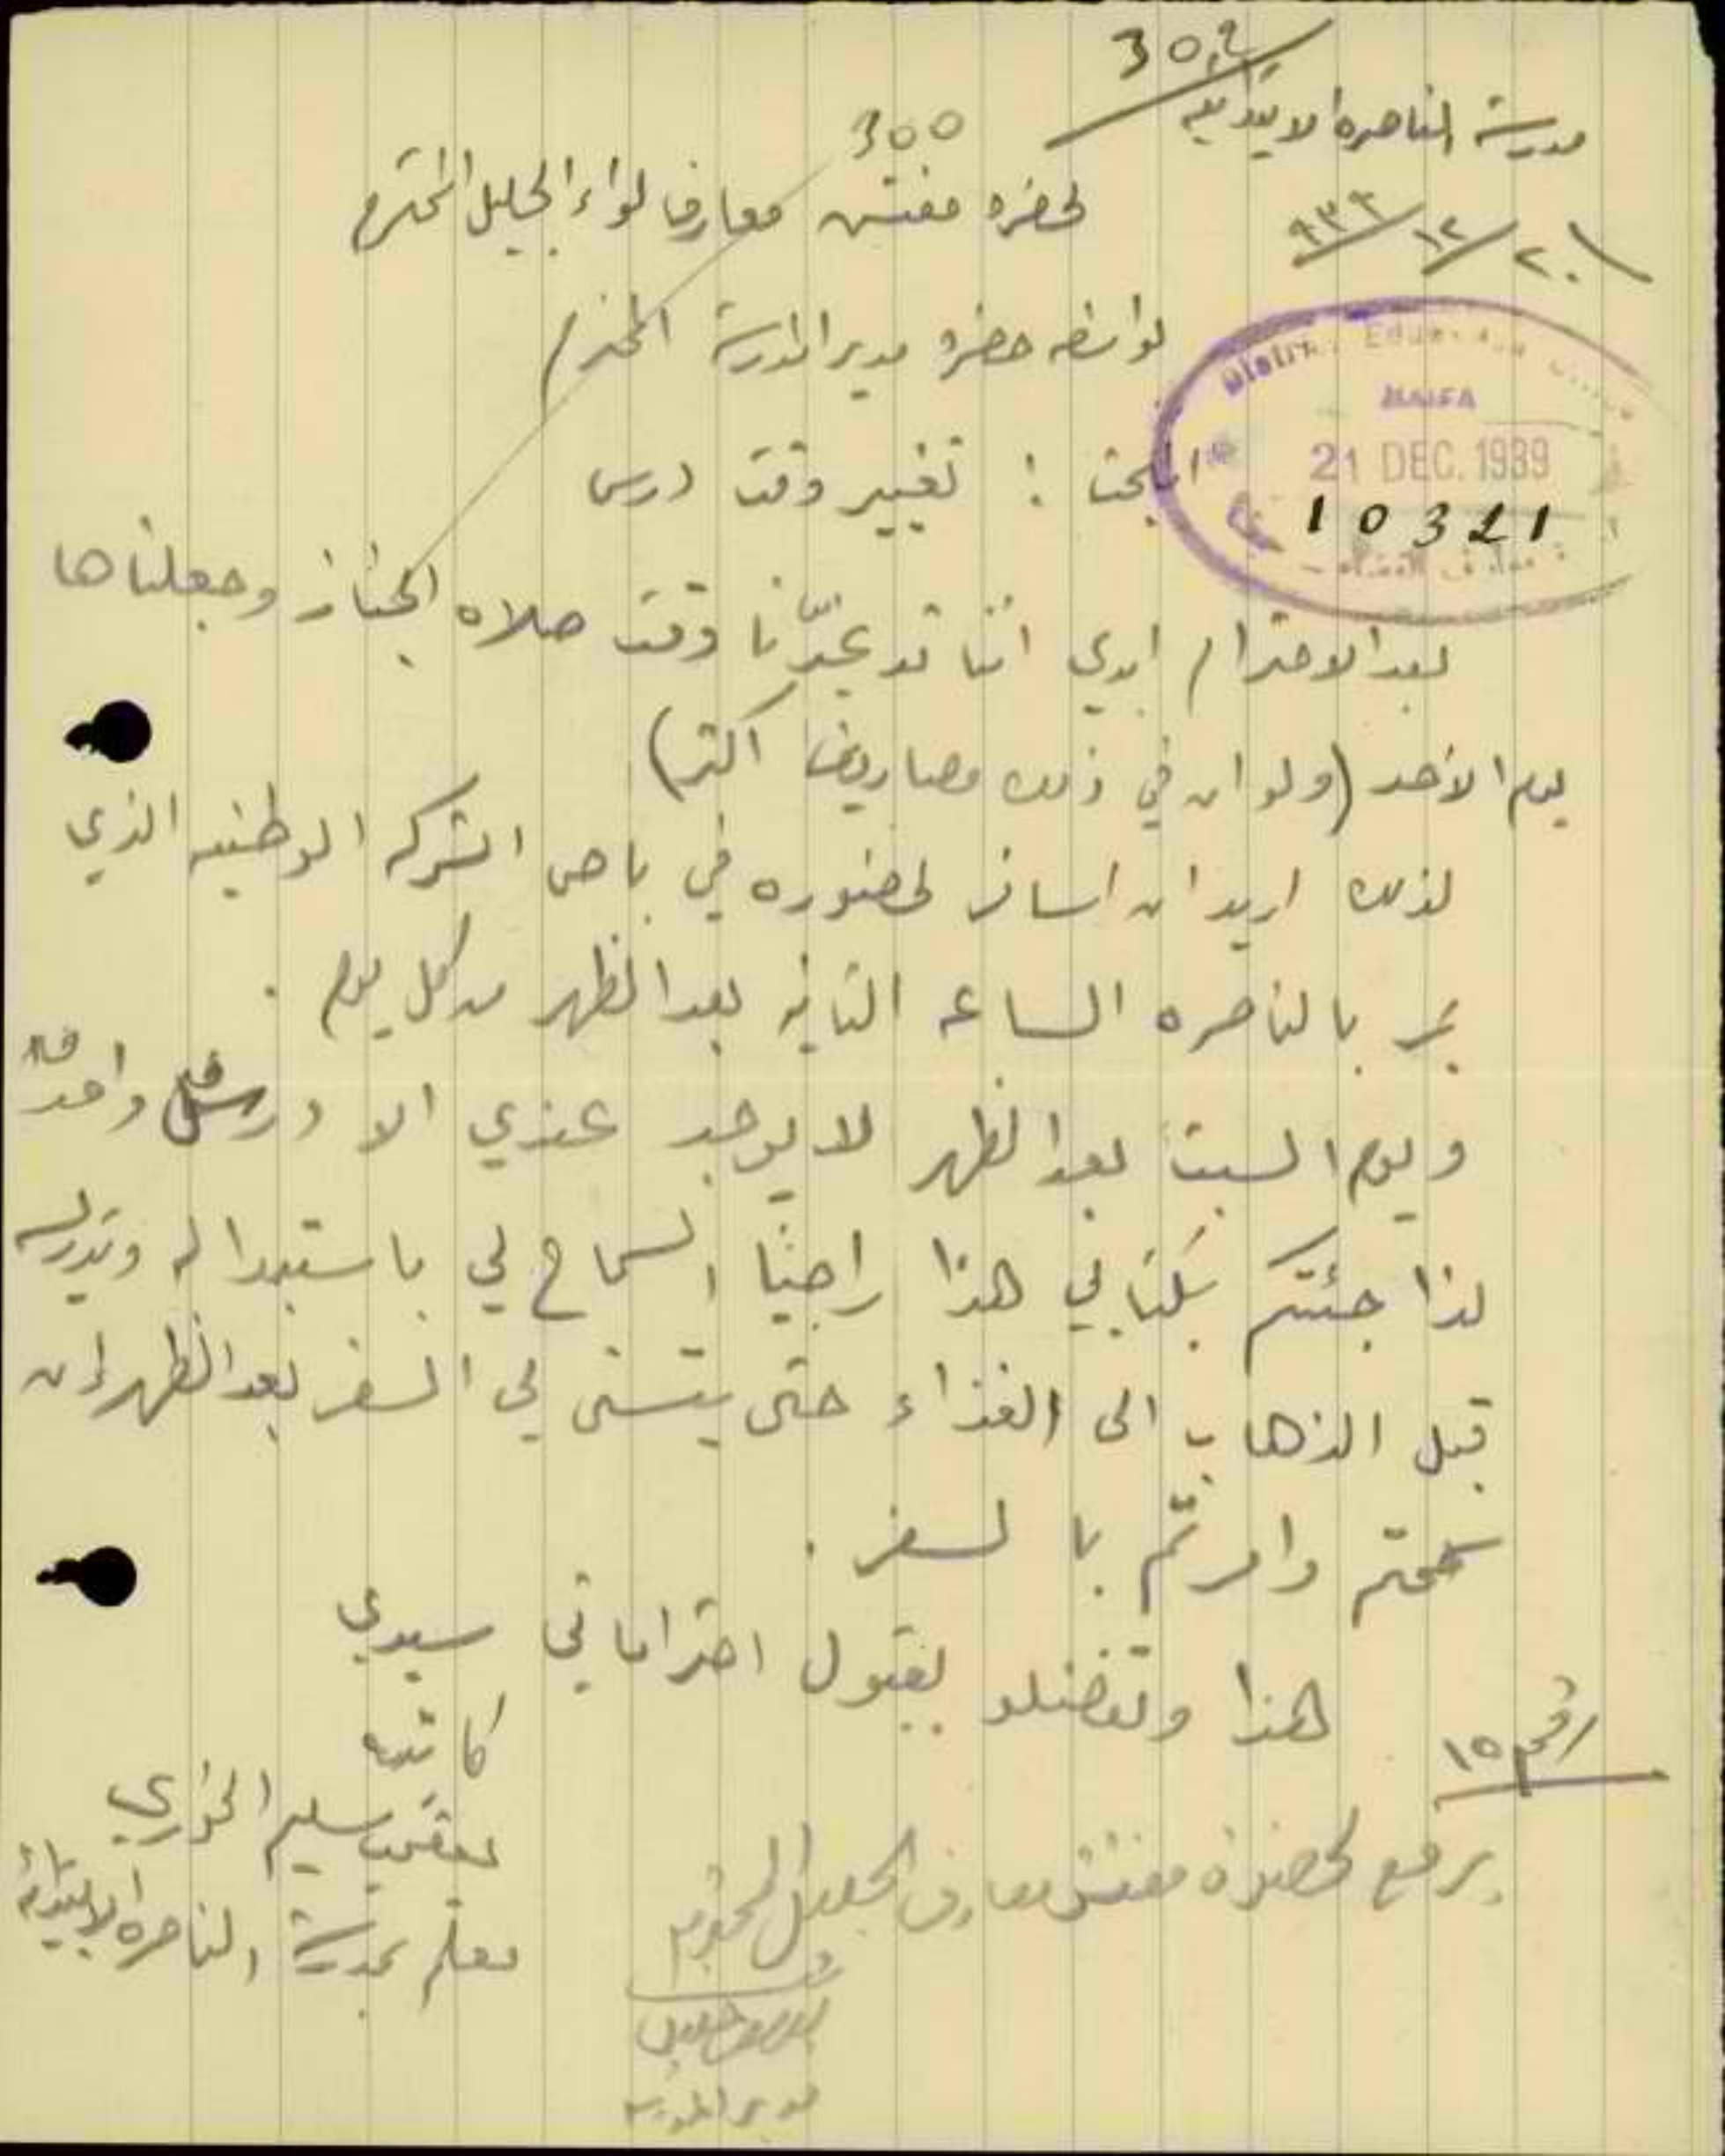 302
مدرسة الناصره الابتدائيه
300
٢٠/١٢/٩٣٩
لحضره مفتش معارف لواء الجليل المحترم
بواسطه حضرة مدير المدرسة المحترم
District Education
HAIFA
21 DEC. 1939
10321
البحث : تغيير وقت درس
بعد الاحترام ابدي اننا قد غيّرنا وقت صلاه الجناز وجعلناها
يوم الأحد (ولو ان في ذلك مصاريف اكثر)
لذلك اريد ان اسافر لحضوره في باص الشركه الوطنيه الذي
يمر بالناصره الساعه الثانيه بعد الظهر من كل يوم .
ويوم السبت بعد الظهر لا يوجد عندي الا درس واحد
لذا جئتكم بكتابي هذا راجيًا السماح لي باستبداله وتدريسه
قبل الذهاب الى الغذاء حتى يتسنى لي السفر بعد الظهر إن
سمحتم وامرتم بالسفر .
هذا وتفضلو بقبول احتراماتي سيدي
كاتبه
يعقوب سليم الخوري
معلم بمدرسة الناصره الابتدائية
رقم ١٥
يرفع لحضرة مفتش معارف الجليل المحترم
مدير المدرسه